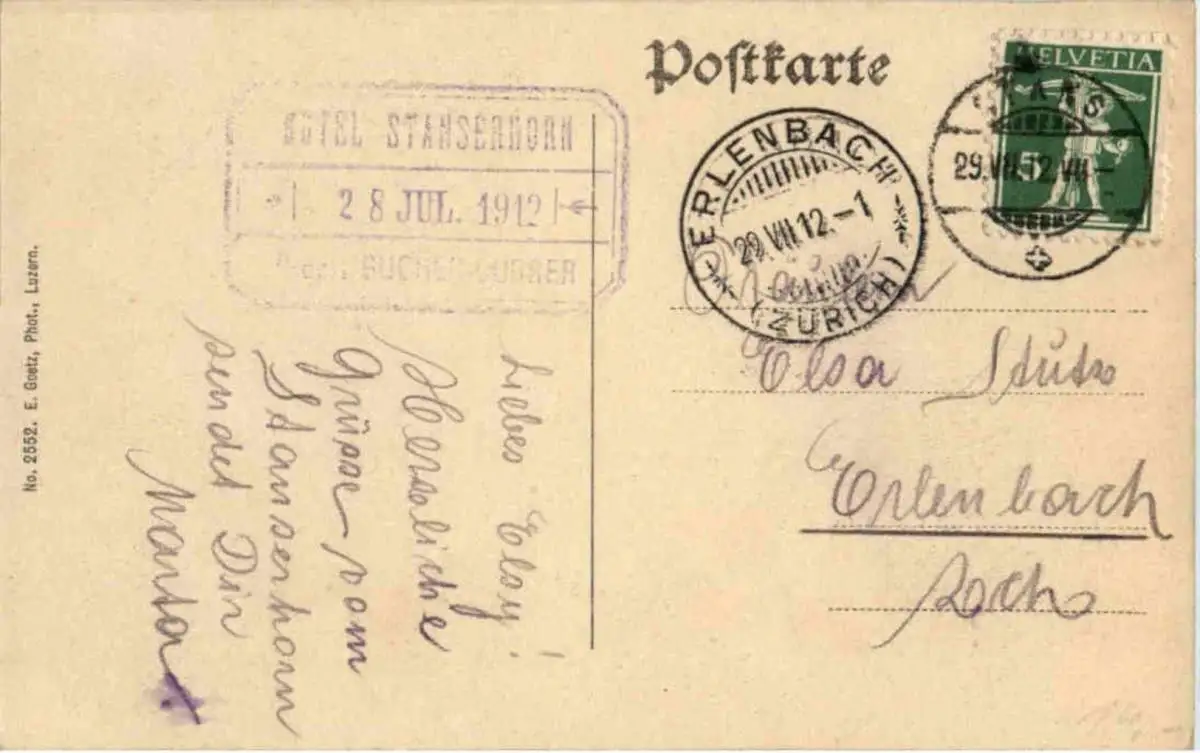 Postkarte
HELVETIA
5
STANS
29.VII.12.VII-
ERLENBACH
29.VII.12.-1
(ZÜRICH)
HOTEL STANSERHORN
28 JUL. 1912
BUCHER-DURRER
Elsa Stutz
Erlenbach
Liebes Elsy!
Herzliche
Grüsse vom
Stanserhorn
sendet Dir
Martha.
No. 2552. E. Goetz, Phot., Luzern.